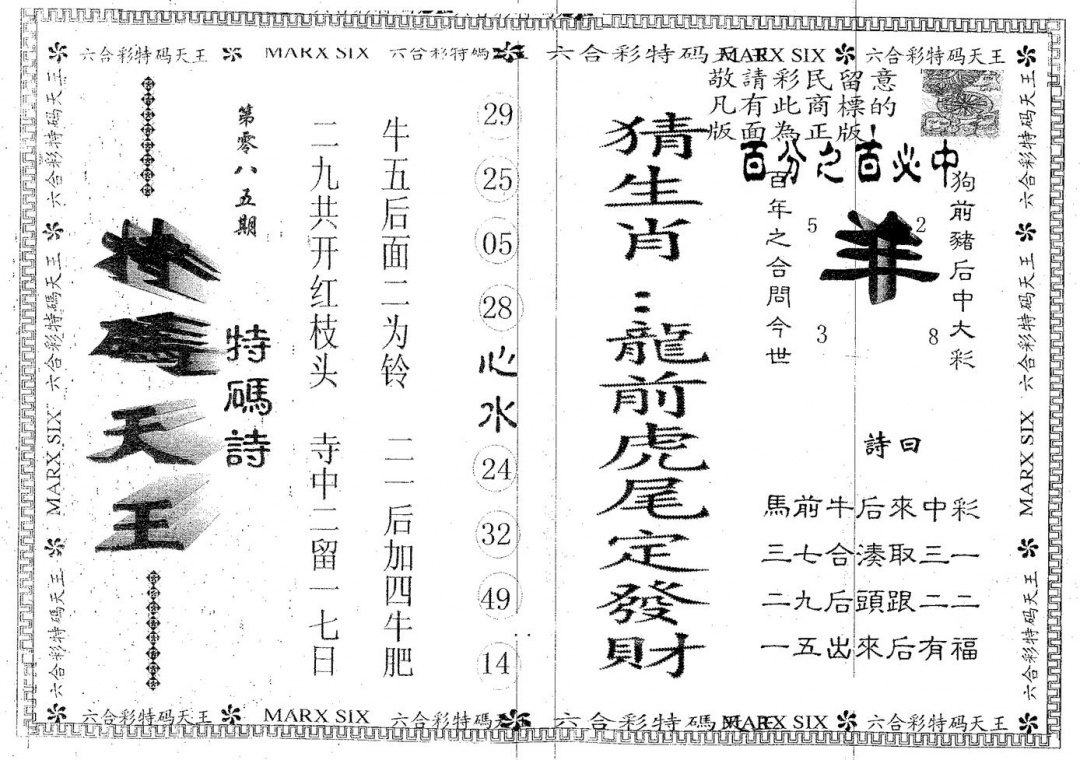 六合彩特码天王 MARX SIX 六合彩特碼天王 六合彩特码天王 MARX SIX 六合彩特码天王
敬請彩民留意
凡有此商標的
版面為正版!
百分之百必中
狗前豬后中大彩
羊
5 2
3 8
百年之合問今世
詩曰
馬前牛后來中彩
三七合湊取三一
二九后頭跟二二
一五出來后有福
猜生肖:龍前虎尾定發財
29
25
05
28
心水
24
32
49
14
牛五后面二为铃 二一后加四牛肥
二九共开红枝头 寺中二留一七日
特碼詩
第零八五期
特碼天王
六合彩特码天王 六合彩特碼天王 MARX SIX 六合彩特码天王
六合彩特码天王 六合彩特碼天王 MARX SIX 六合彩特码天王
六合彩特码天王 MARX SIX 六合彩特碼天王 六合彩特碼天王 MARX SIX 六合彩特码天王